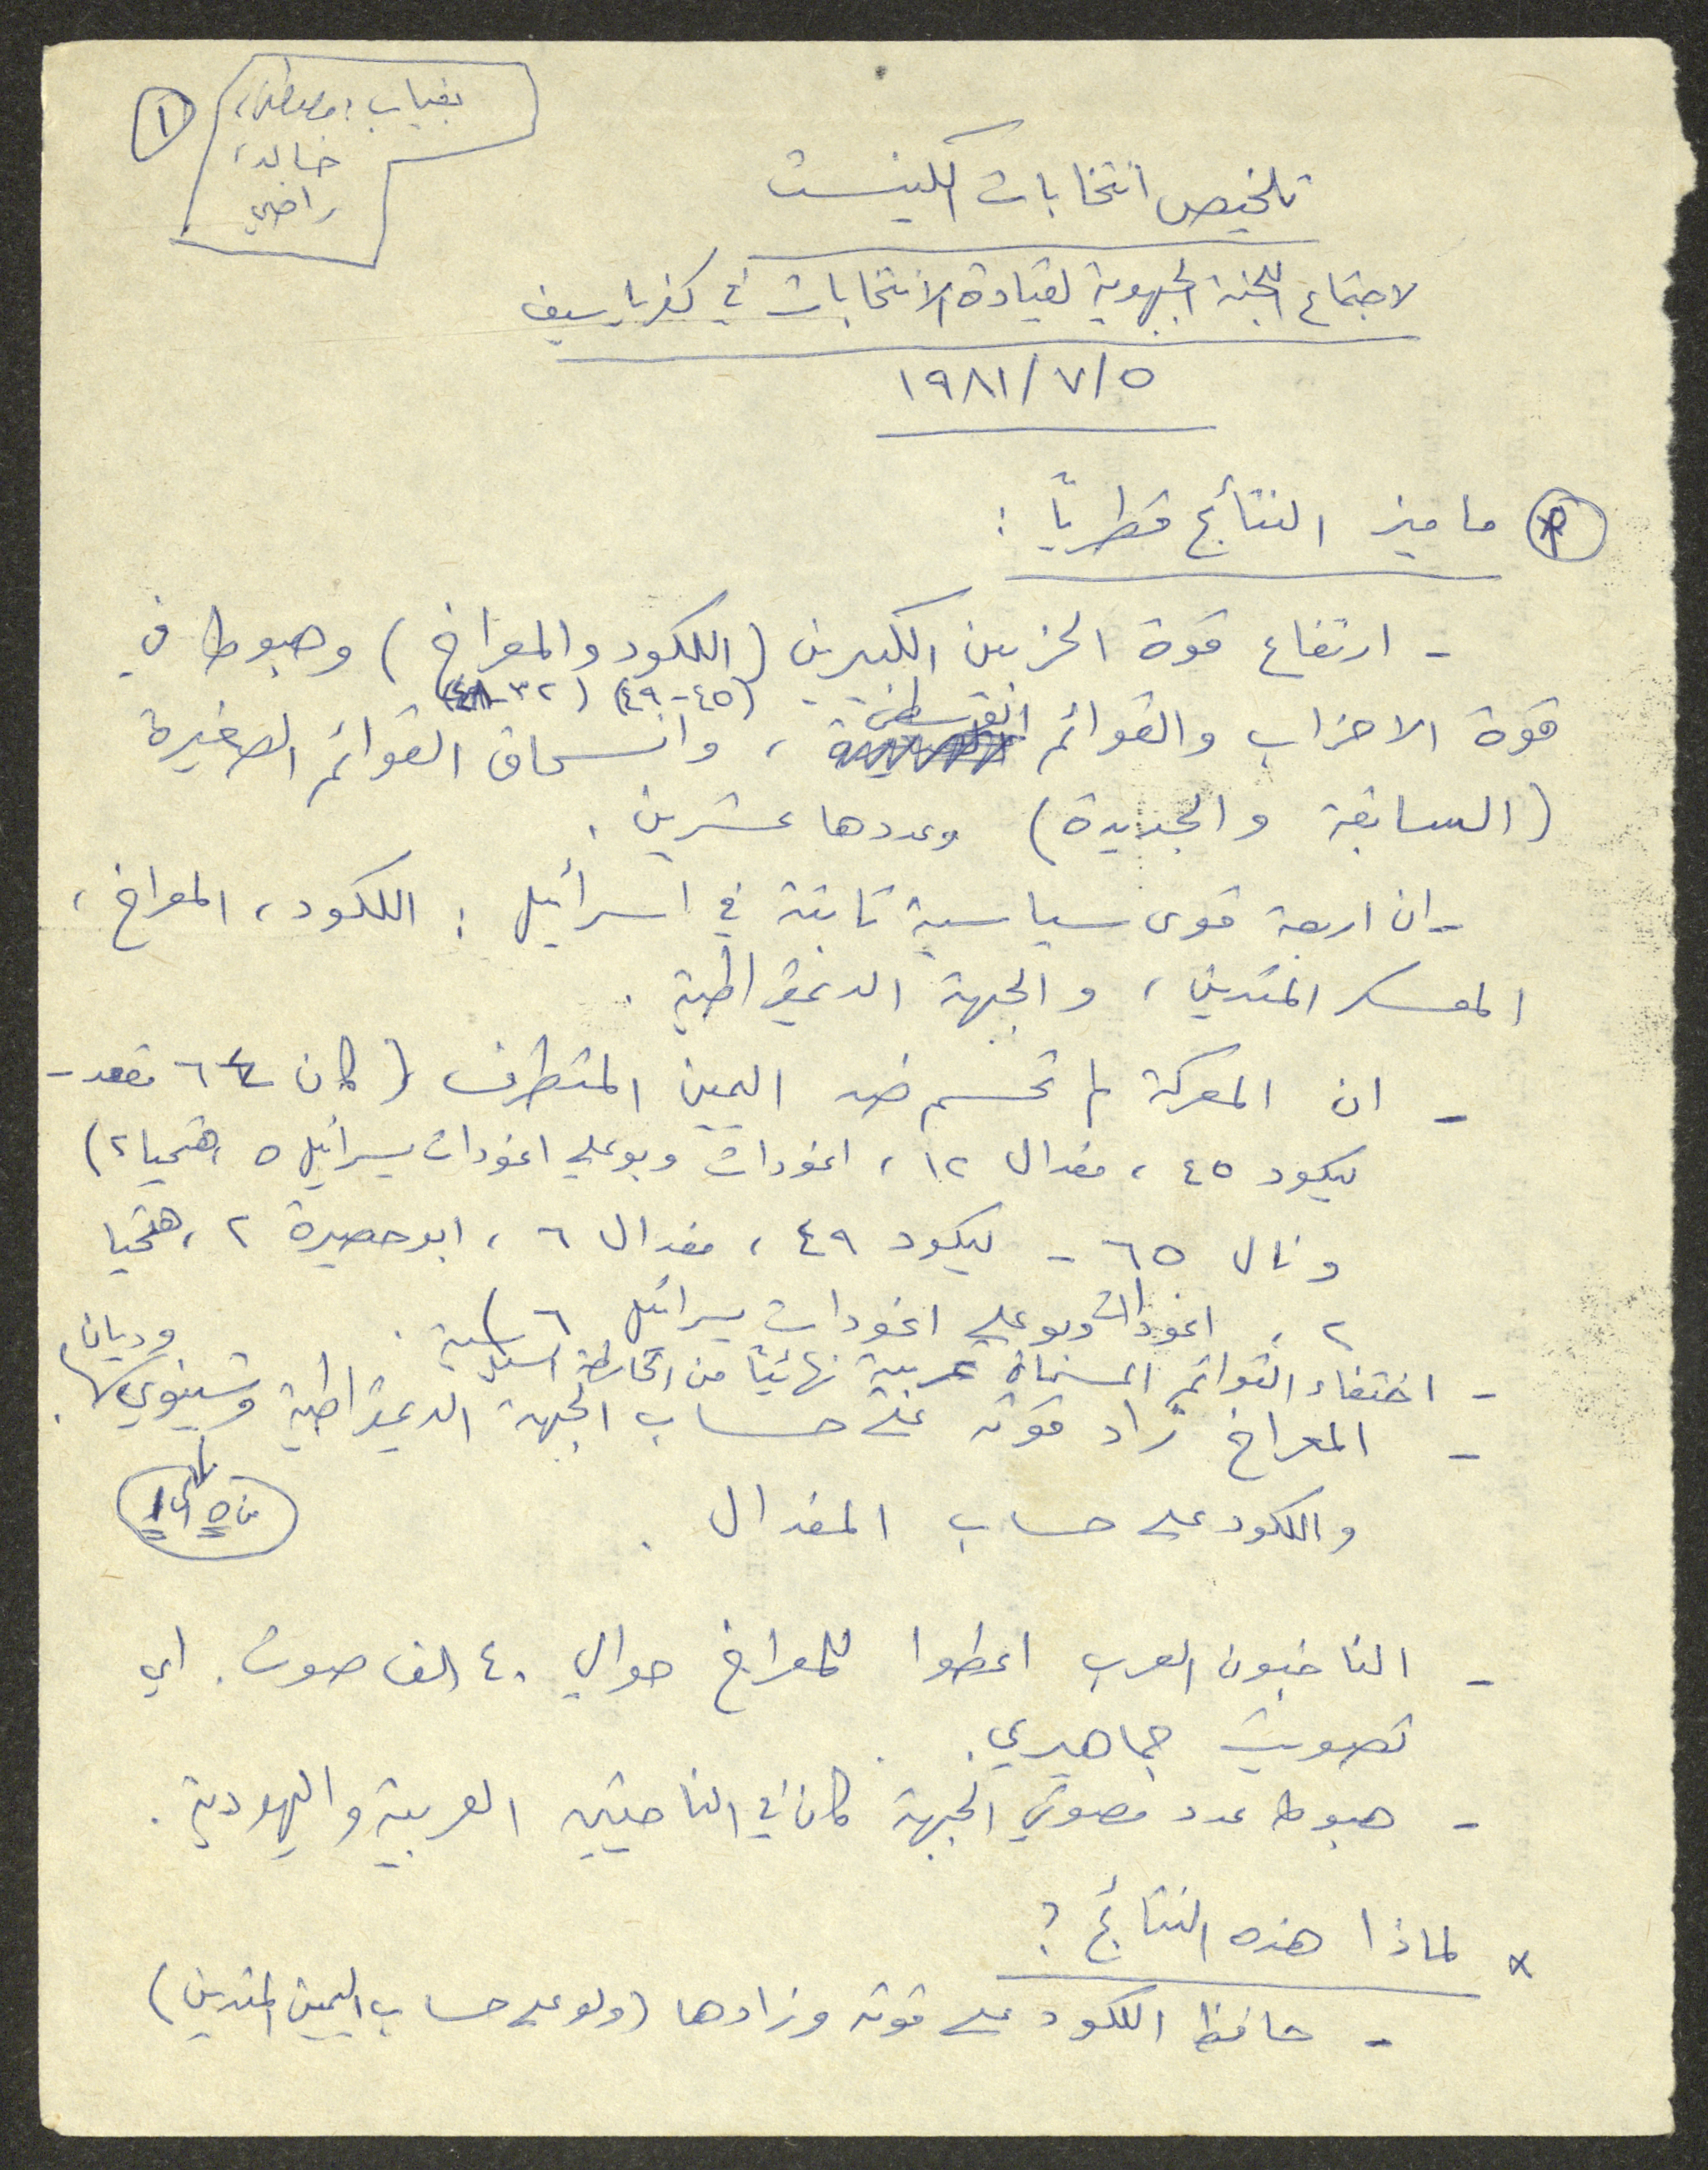 ١
بغياب: مصطفى،
خالد،
راضي
تلخيص انتخابات الكنيست
لاجتماع اللجنة الجبهوية لقيادة الانتخابات في كفرياسيف
١٩٨١/٧/٥
ما ميز النتائج قطرياً :
- ارتفاع قوة الحزبين الكبيرين (اللكود والمعراخ) وهبوط في
(٤٥-٤٩) (٣٢-
قوة الاحزاب والقوائم ، وانسحاق القوائم الصغيرة
(السابقة والجديدة) وعددها عشرين .
- ان اربعة قوى سياسية ثابتة في اسرائيل : اللكود، المعراخ،
المعسكر المتدين، والجبهة الديمقراطية .
- ان المعركة لم تحسم ضد اليمين المتطرف (كان ٦٤ مقعد -
ليكود ٤٥ ، مفدال ١٢ ، اغودات وبوعلي اغودات يسرائيل ٥ ، هتحيا ٢)
ونال ٦٥ - ليكود ٤٩ ، مفدال ٦ ، ابو حصيرة ٢ ، هتحيا
٢ ، اغودات وبوعلي اغودات يسرائيل ٦) .
- اختفاء القوائم المسماة عربية نهائياً من الخارطة السياسية .
- المعراخ زاد قوته على حساب الجبهة الديمقراطية وشينوي وديان .
من ٥ الى ١
واللكود على حساب المفدال .
- الناخبون العرب اعطوا للمعراخ حوالي ٤٠ الف صوت . اي
تصويت جماهيري .
- هبوط عدد مصوتي الجبهة كان في الناحيتين العربية واليهودية .
× لماذا هذه النتائج ؟
- حافظ اللكود على قوته وزادها (ولو على حساب اليمين المتدين)